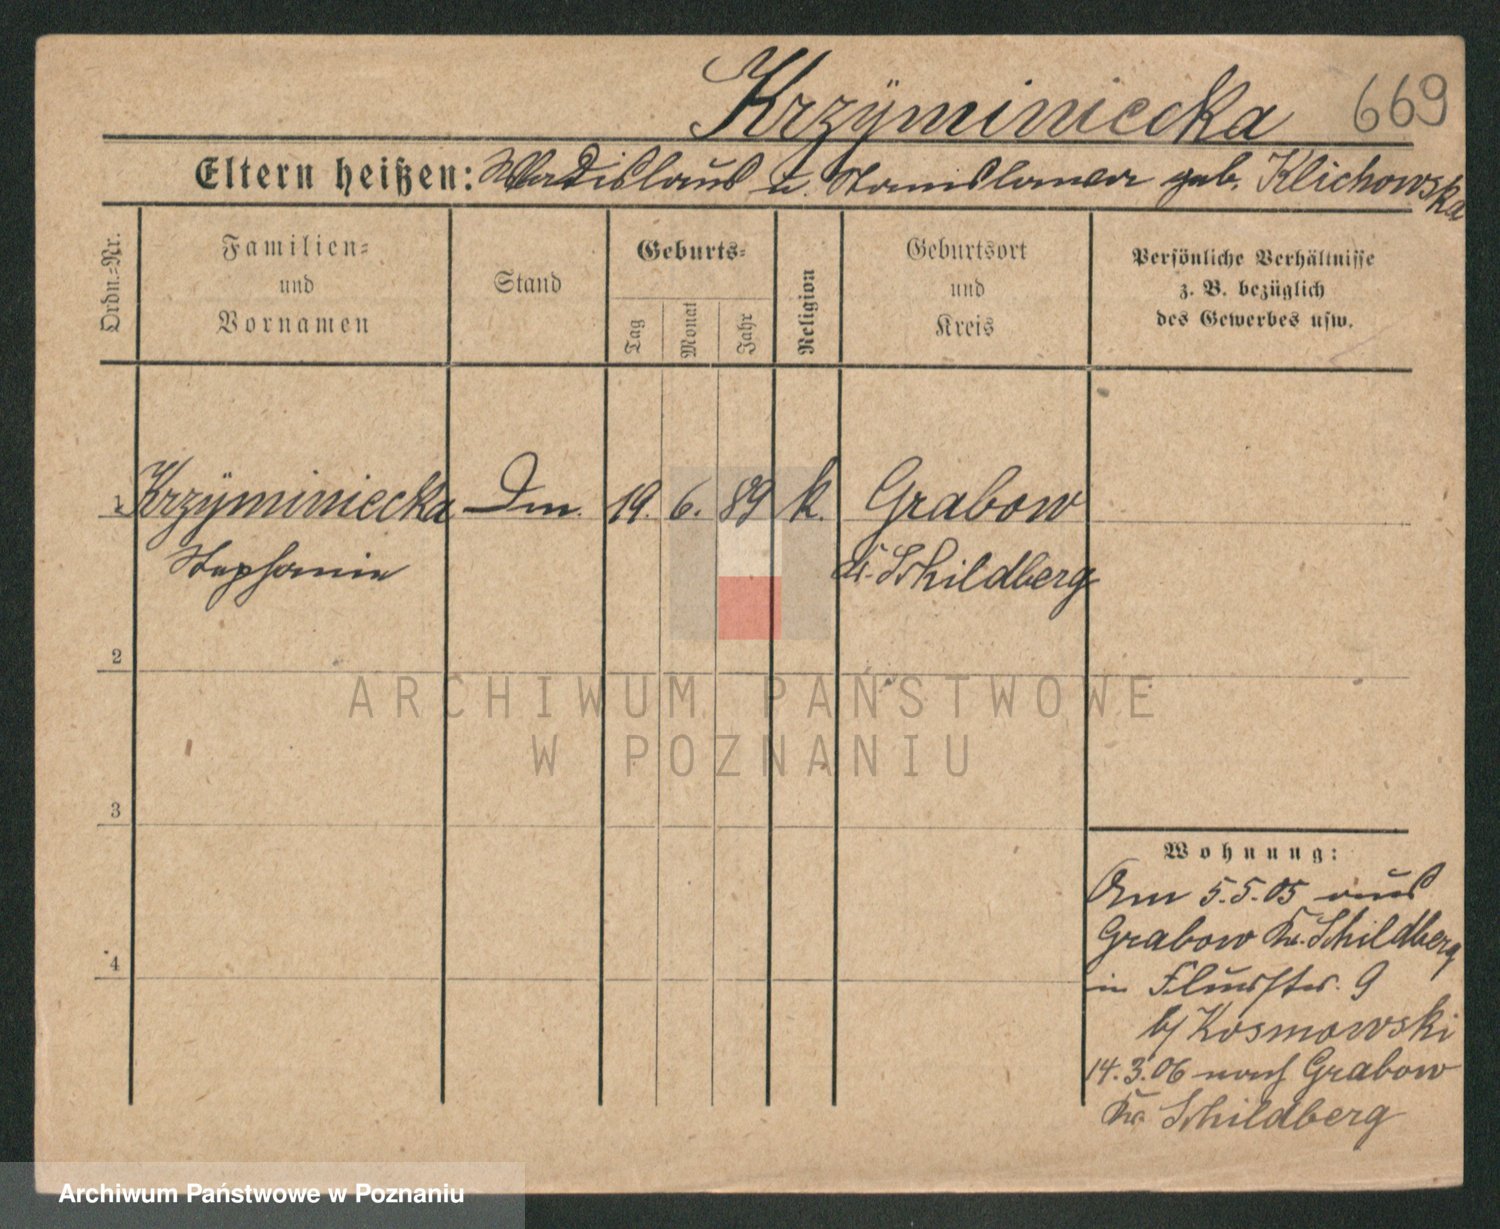 Krzÿminiecka 669
Eltern heißen: Wladislaus u. Stanislawa geb. Klichowska
Ordn.=Nr.
Familien=
und
Vornamen
Stand
Geburts=
Tag
Monat
Jahr
Religion
Geburtsort
und
Kreis
Persönliche Verhältnisse
z. B. bezüglich
des Gewerbes usw.
1 Krzÿminiecka Dm. 19. 6. 89 k. Grabow
Stephanie Kr. Schildberg
2
3
4
Wohnung:
Am 5.5.05 aus
Grabow Kr. Schildberg
in Flurstr. 9
b/ Kosmowski
14.3.06 nach Grabow
Kr. Schildberg
ARCHIWUM PAŃSTWOWE
W POZNANIU
Archiwum Państwowe w Poznaniu